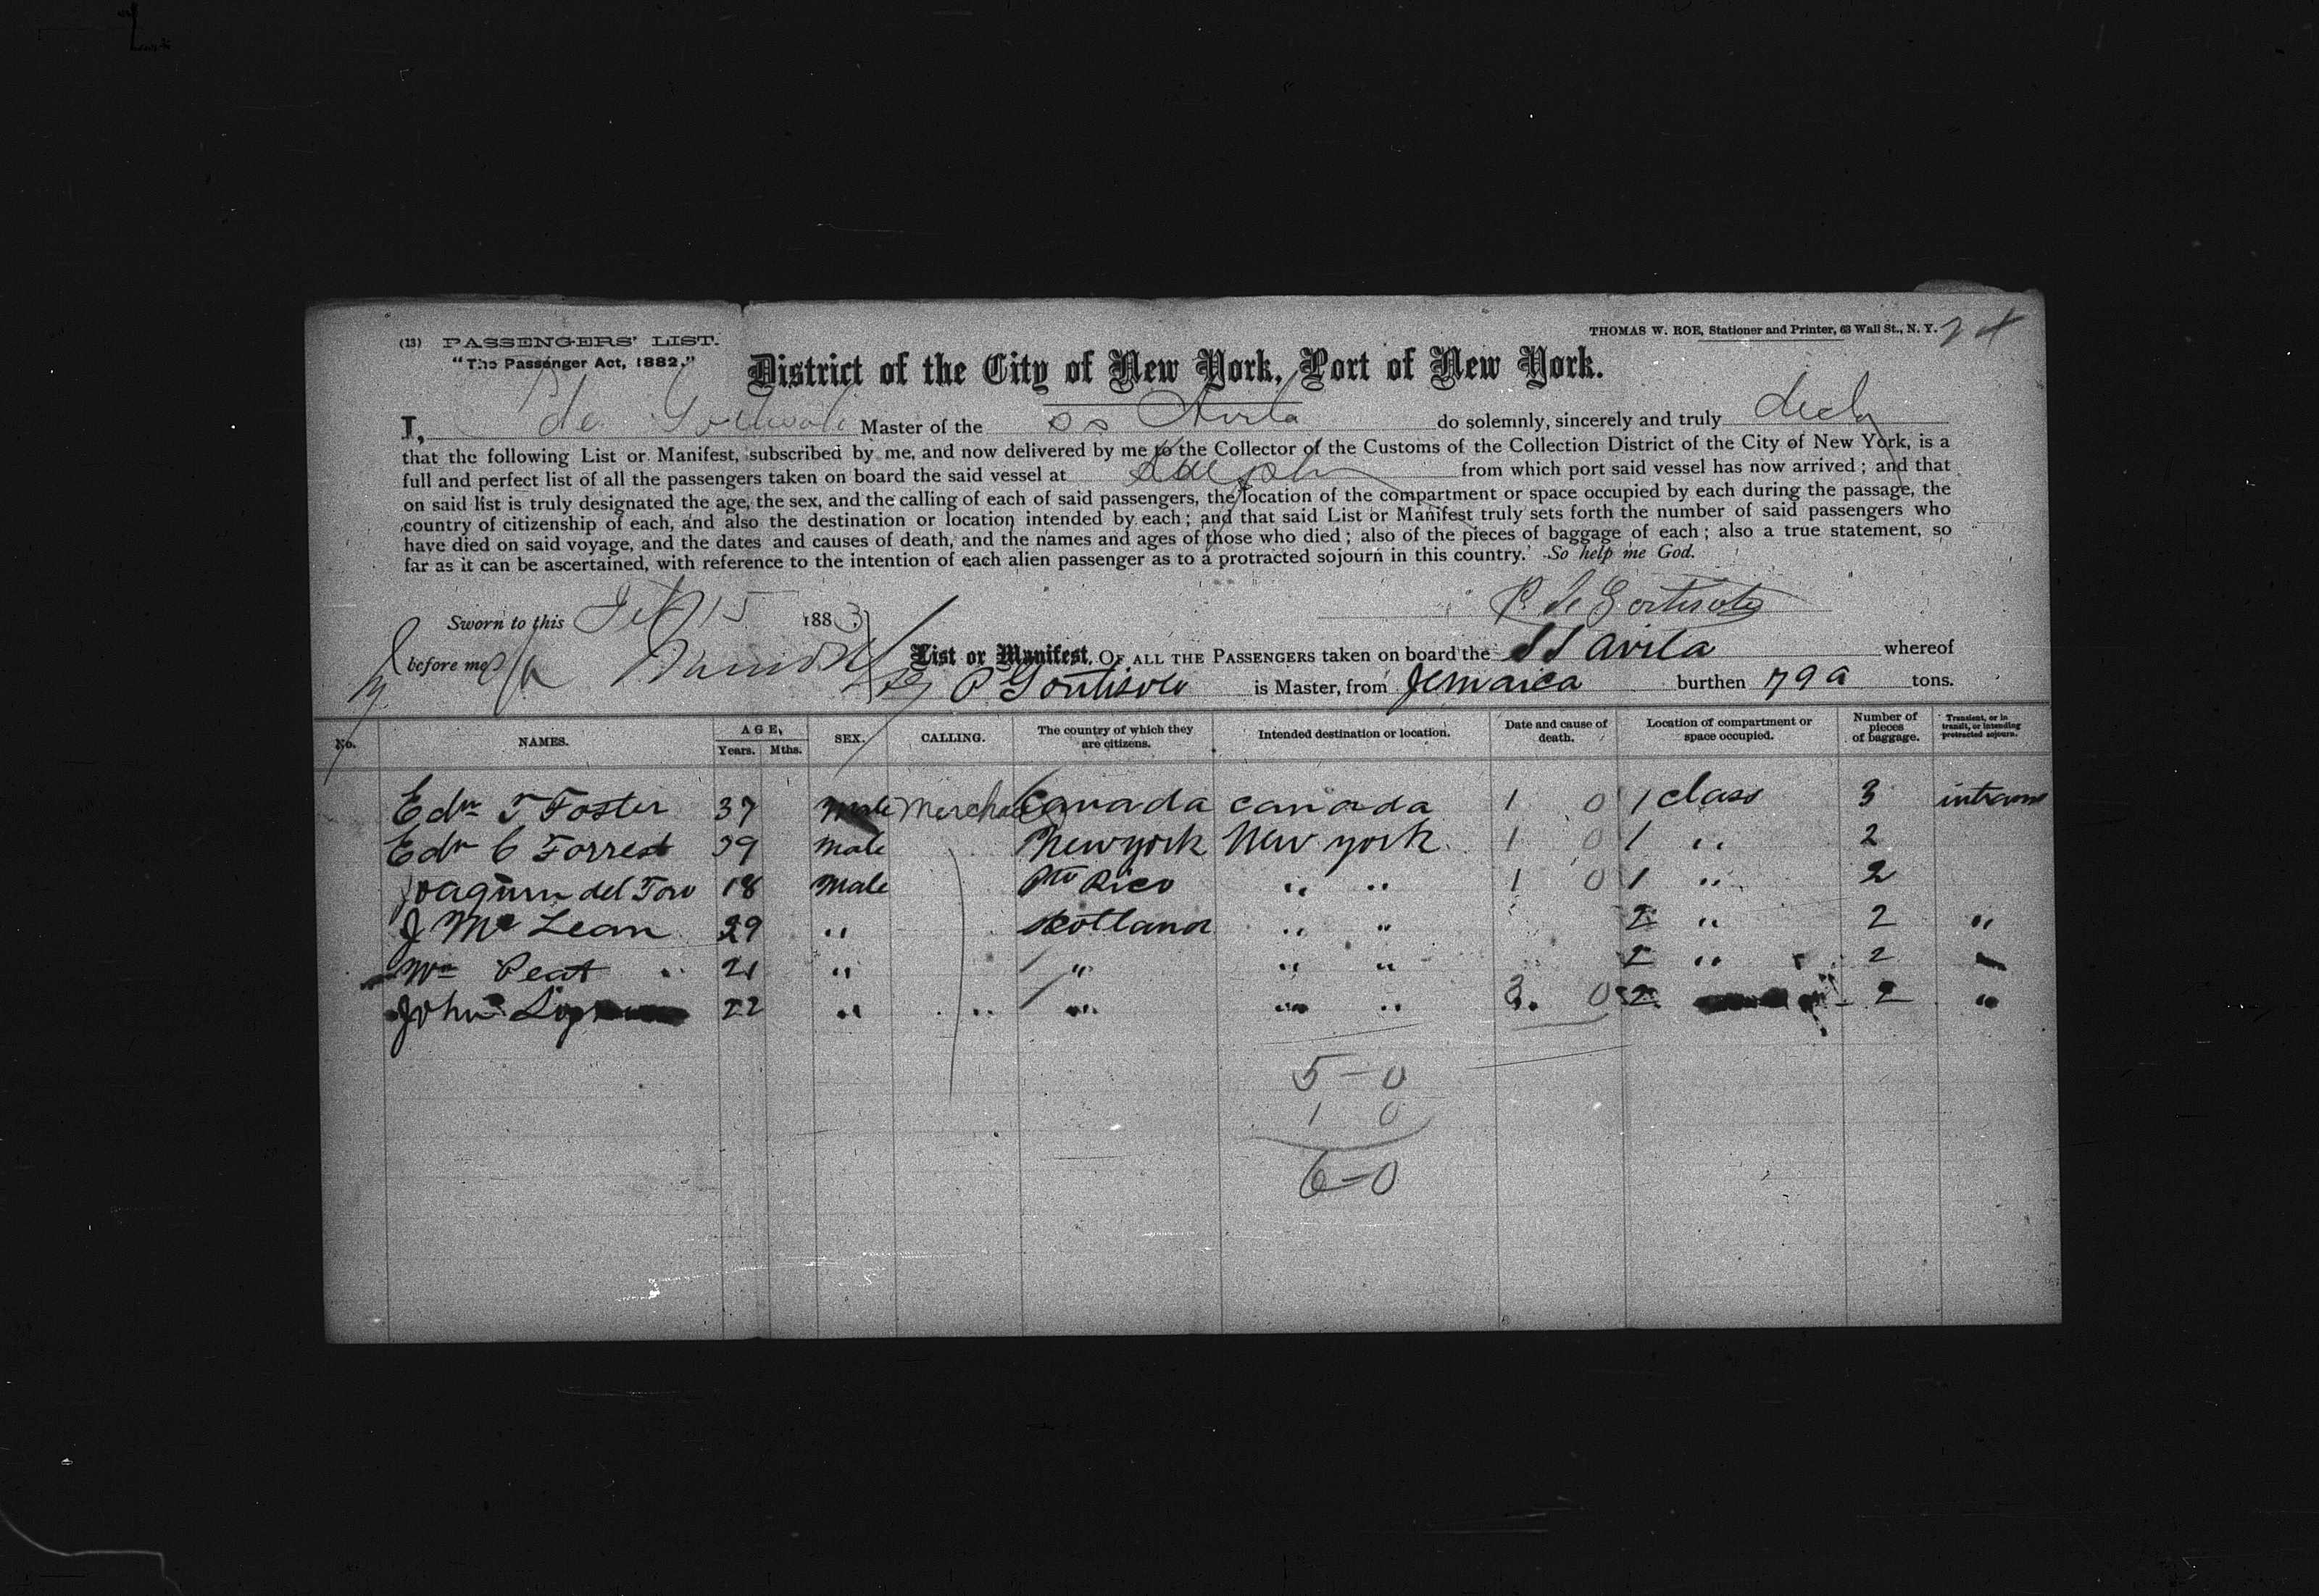 (13) PASSENGERS' LIST.
"The Passenger Act, 1882."
THOMAS W. ROE, Stationer and Printer, 63 Wall St., N. Y.
District of the City of New York, Port of New York.
I, P de Master of the SS Avila do solemnly, sincerely and truly
that the following List or Manifest, subscribed by me, and now delivered by me to the Collector of the Customs of the Collection District of the City of New York, is a
full and perfect list of all the passengers taken on board the said vessel at from which port said vessel has now arrived; and that
on said list is truly designated the age, the sex, and the calling of each of said passengers, the location of the compartment or space occupied by each during the passage, the
country of citizenship of each, and also the destination or location intended by each; and that said List or Manifest truly sets forth the number of said passengers who
have died on said voyage, and the dates and causes of death, and the names and ages of those who died; also of the pieces of baggage of each; also a true statement, so
far as it can be ascertained, with reference to the intention of each alien passenger as to a protracted sojourn in this country. So help me God.
Sworn to this Feb 15 1883 P. de
before me
List or Manifest, OF ALL THE PASSENGERS taken on board the SS Avila whereof
P is Master, from Jemaica burthen tons.
No. NAMES. AGE, Years. Mths. SEX. CALLING. The country of which they are citizens. Intended destination or location. Date and cause of death. Location of compartment or space occupied. Number of pieces of baggage. Transient, or in transit, or intending protracted sojourn.
Edn T Foster 37 Male Canada canada 1 0 1 class 3
Edn C Forrest 39 Male New york New york 1 0 1 " 2
Joaquin del Toro 18 Male Pto Rico " " 1 0 1 " 2
J Mc Lean 29 " Scotland " " 2 " 2 "
Wm Peat 21 " " " " 2 " 2
John 22 " " " " " 3. 0 2 2 "
5-0
1 0
6-0